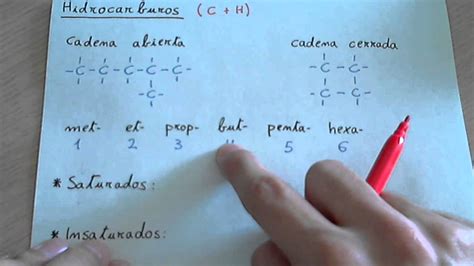 Hidrocarburos (C + H)
Cadena abierta cadena cerrada
-C-C-C-C-C- -C-C-
-C- -C-C-
met- et- prop- but- penta- hexa-
1 2 3 4 5 6
* Saturados:
* Insaturados: